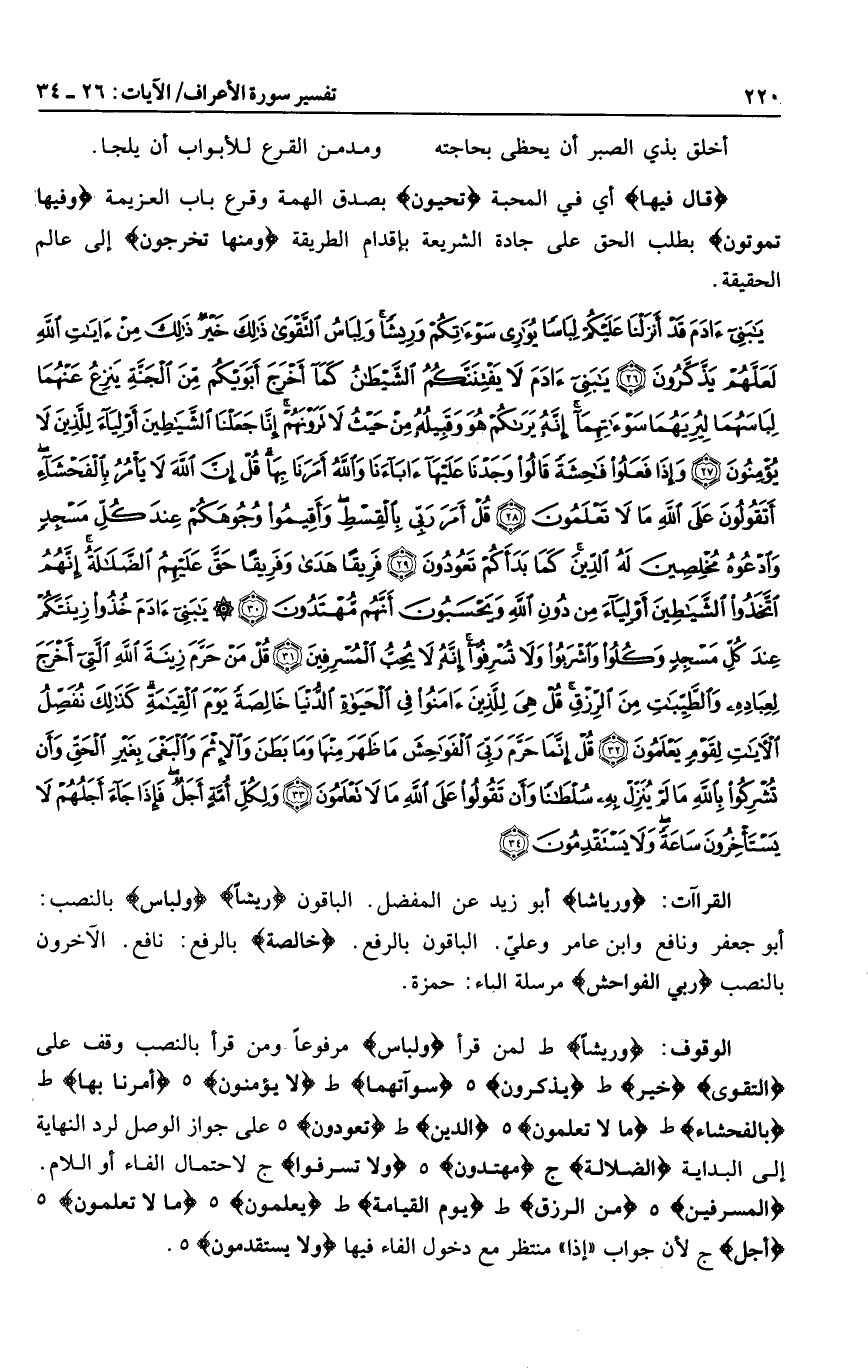 ٢٢٠ تفسير سورة الأعراف/ الآيات: ٢٦ ـ ٣٤
أخلق بذي الصبر أن يحظى بحاجته ومدمن القرع للأبواب أن يلجا.
﴿قال فيها﴾ أي في المحبة ﴿تحيون﴾ بصدق الهمة وقرع باب العزيمة ﴿وفيها
تموتون﴾ بطلب الحق على جادة الشريعة بإقدام الطريقة ﴿ومنها تخرجون﴾ إلى عالم
الحقيقة.
يَٰبَنِىٓ ءَادَمَ قَدْ أَنزَلْنَا عَلَيْكُمْ لِبَاسًا يُوَٰرِى سَوْءَٰتِكُمْ وَرِيشًا ۖ وَلِبَاسُ ٱلتَّقْوَىٰ ذَٰلِكَ خَيْرٌ ۚ ذَٰلِكَ مِنْ ءَايَٰتِ ٱللَّهِ
لَعَلَّهُمْ يَذَّكَّرُونَ ﴿٢٦﴾ يَٰبَنِىٓ ءَادَمَ لَا يَفْتِنَنَّكُمُ ٱلشَّيْطَٰنُ كَمَآ أَخْرَجَ أَبَوَيْكُم مِّنَ ٱلْجَنَّةِ يَنزِعُ عَنْهُمَا
لِبَاسَهُمَا لِيُرِيَهُمَا سَوْءَٰتِهِمَآ ۗ إِنَّهُۥ يَرَىٰكُمْ هُوَ وَقَبِيلُهُۥ مِنْ حَيْثُ لَا تَرَوْنَهُمْ ۗ إِنَّا جَعَلْنَا ٱلشَّيَٰطِينَ أَوْلِيَآءَ لِلَّذِينَ لَا
يُؤْمِنُونَ ﴿٢٧﴾ وَإِذَا فَعَلُوا۟ فَٰحِشَةً قَالُوا۟ وَجَدْنَا عَلَيْهَآ ءَابَآءَنَا وَٱللَّهُ أَمَرَنَا بِهَا ۗ قُلْ إِنَّ ٱللَّهَ لَا يَأْمُرُ بِٱلْفَحْشَآءِ ۖ
أَتَقُولُونَ عَلَى ٱللَّهِ مَا لَا تَعْلَمُونَ ﴿٢٨﴾ قُلْ أَمَرَ رَبِّى بِٱلْقِسْطِ ۖ وَأَقِيمُوا۟ وُجُوهَكُمْ عِندَ كُلِّ مَسْجِدٍ
وَٱدْعُوهُ مُخْلِصِينَ لَهُ ٱلدِّينَ ۚ كَمَا بَدَأَكُمْ تَعُودُونَ ﴿٢٩﴾ فَرِيقًا هَدَىٰ وَفَرِيقًا حَقَّ عَلَيْهِمُ ٱلضَّلَٰلَةُ ۗ إِنَّهُمُ
ٱتَّخَذُوا۟ ٱلشَّيَٰطِينَ أَوْلِيَآءَ مِن دُونِ ٱللَّهِ وَيَحْسَبُونَ أَنَّهُم مُّهْتَدُونَ ﴿٣٠﴾ ۞ يَٰبَنِىٓ ءَادَمَ خُذُوا۟ زِينَتَكُمْ
عِندَ كُلِّ مَسْجِدٍ وَكُلُوا۟ وَٱشْرَبُوا۟ وَلَا تُسْرِفُوٓا۟ ۚ إِنَّهُۥ لَا يُحِبُّ ٱلْمُسْرِفِينَ ﴿٣١﴾ قُلْ مَنْ حَرَّمَ زِينَةَ ٱللَّهِ ٱلَّتِىٓ أَخْرَجَ
لِعِبَادِهِۦ وَٱلطَّيِّبَٰتِ مِنَ ٱلرِّزْقِ ۚ قُلْ هِىَ لِلَّذِينَ ءَامَنُوا۟ فِى ٱلْحَيَوٰةِ ٱلدُّنْيَا خَالِصَةً يَوْمَ ٱلْقِيَٰمَةِ ۗ كَذَٰلِكَ نُفَصِّلُ
ٱلْءَايَٰتِ لِقَوْمٍ يَعْلَمُونَ ﴿٣٢﴾ قُلْ إِنَّمَا حَرَّمَ رَبِّىَ ٱلْفَوَٰحِشَ مَا ظَهَرَ مِنْهَا وَمَا بَطَنَ وَٱلْإِثْمَ وَٱلْبَغْىَ بِغَيْرِ ٱلْحَقِّ وَأَن
تُشْرِكُوا۟ بِٱللَّهِ مَا لَمْ يُنَزِّلْ بِهِۦ سُلْطَٰنًا وَأَن تَقُولُوا۟ عَلَى ٱللَّهِ مَا لَا تَعْلَمُونَ ﴿٣٣﴾ وَلِكُلِّ أُمَّةٍ أَجَلٌ ۖ فَإِذَا جَآءَ أَجَلُهُمْ لَا
يَسْتَأْخِرُونَ سَاعَةً ۖ وَلَا يَسْتَقْدِمُونَ ﴿٣٤﴾
القراآت: ﴿ورياشا﴾ أبو زيد عن المفضل. الباقون ﴿ريشاً﴾ ﴿ولباس﴾ بالنصب:
أبو جعفر ونافع وابن عامر وعليّ. الباقون بالرفع. ﴿خالصة﴾ بالرفع: نافع. الآخرون
بالنصب ﴿ربي الفواحش﴾ مرسلة الياء: حمزة.
الوقوف: ﴿وريشاً﴾ ط لمن قرأ ﴿ولباس﴾ مرفوعاً ومن قرأ بالنصب وقف على
﴿التقوى﴾ ﴿خير﴾ ط ﴿يذكرون﴾ ٥ ﴿سوآتهما﴾ ط ﴿لا يؤمنون﴾ ٥ ﴿أمرنا بها﴾ ط
﴿بالفحشاء﴾ ط ﴿ما لا تعلمون﴾ ٥ ﴿الدين﴾ ط ﴿تعودون﴾ ٥ على جواز الوصل لرد النهاية
إلى البداية ﴿الضلالة﴾ ج ﴿مهتدون﴾ ٥ ﴿ولا تسرفوا﴾ ج لاحتمال الفاء أو اللام.
﴿المسرفين﴾ ٥ ﴿من الرزق﴾ ط ﴿يوم القيامة﴾ ط ﴿يعلمون﴾ ٥ ﴿ما لا تعلمون﴾ ٥
﴿أجل﴾ ج لأن جواب «إذا» منتظر مع دخول الفاء فيها ﴿ولا يستقدمون﴾ ٥.